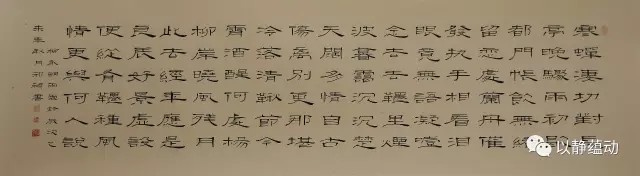 寒蟬淒切對長
亭晚驟雨初歇
都門帳飲無緒
留戀處蘭舟催
發執手相看淚
眼竟無語凝噎
念去去千里煙
波暮靄沉沉楚
天闊多情自古
傷離別更那堪
冷落清秋節今
宵酒醒何處楊
柳岸曉風殘月
此去經年應是
良辰好景虛設
便縱有千種風
情更與何人說
以静蕴动